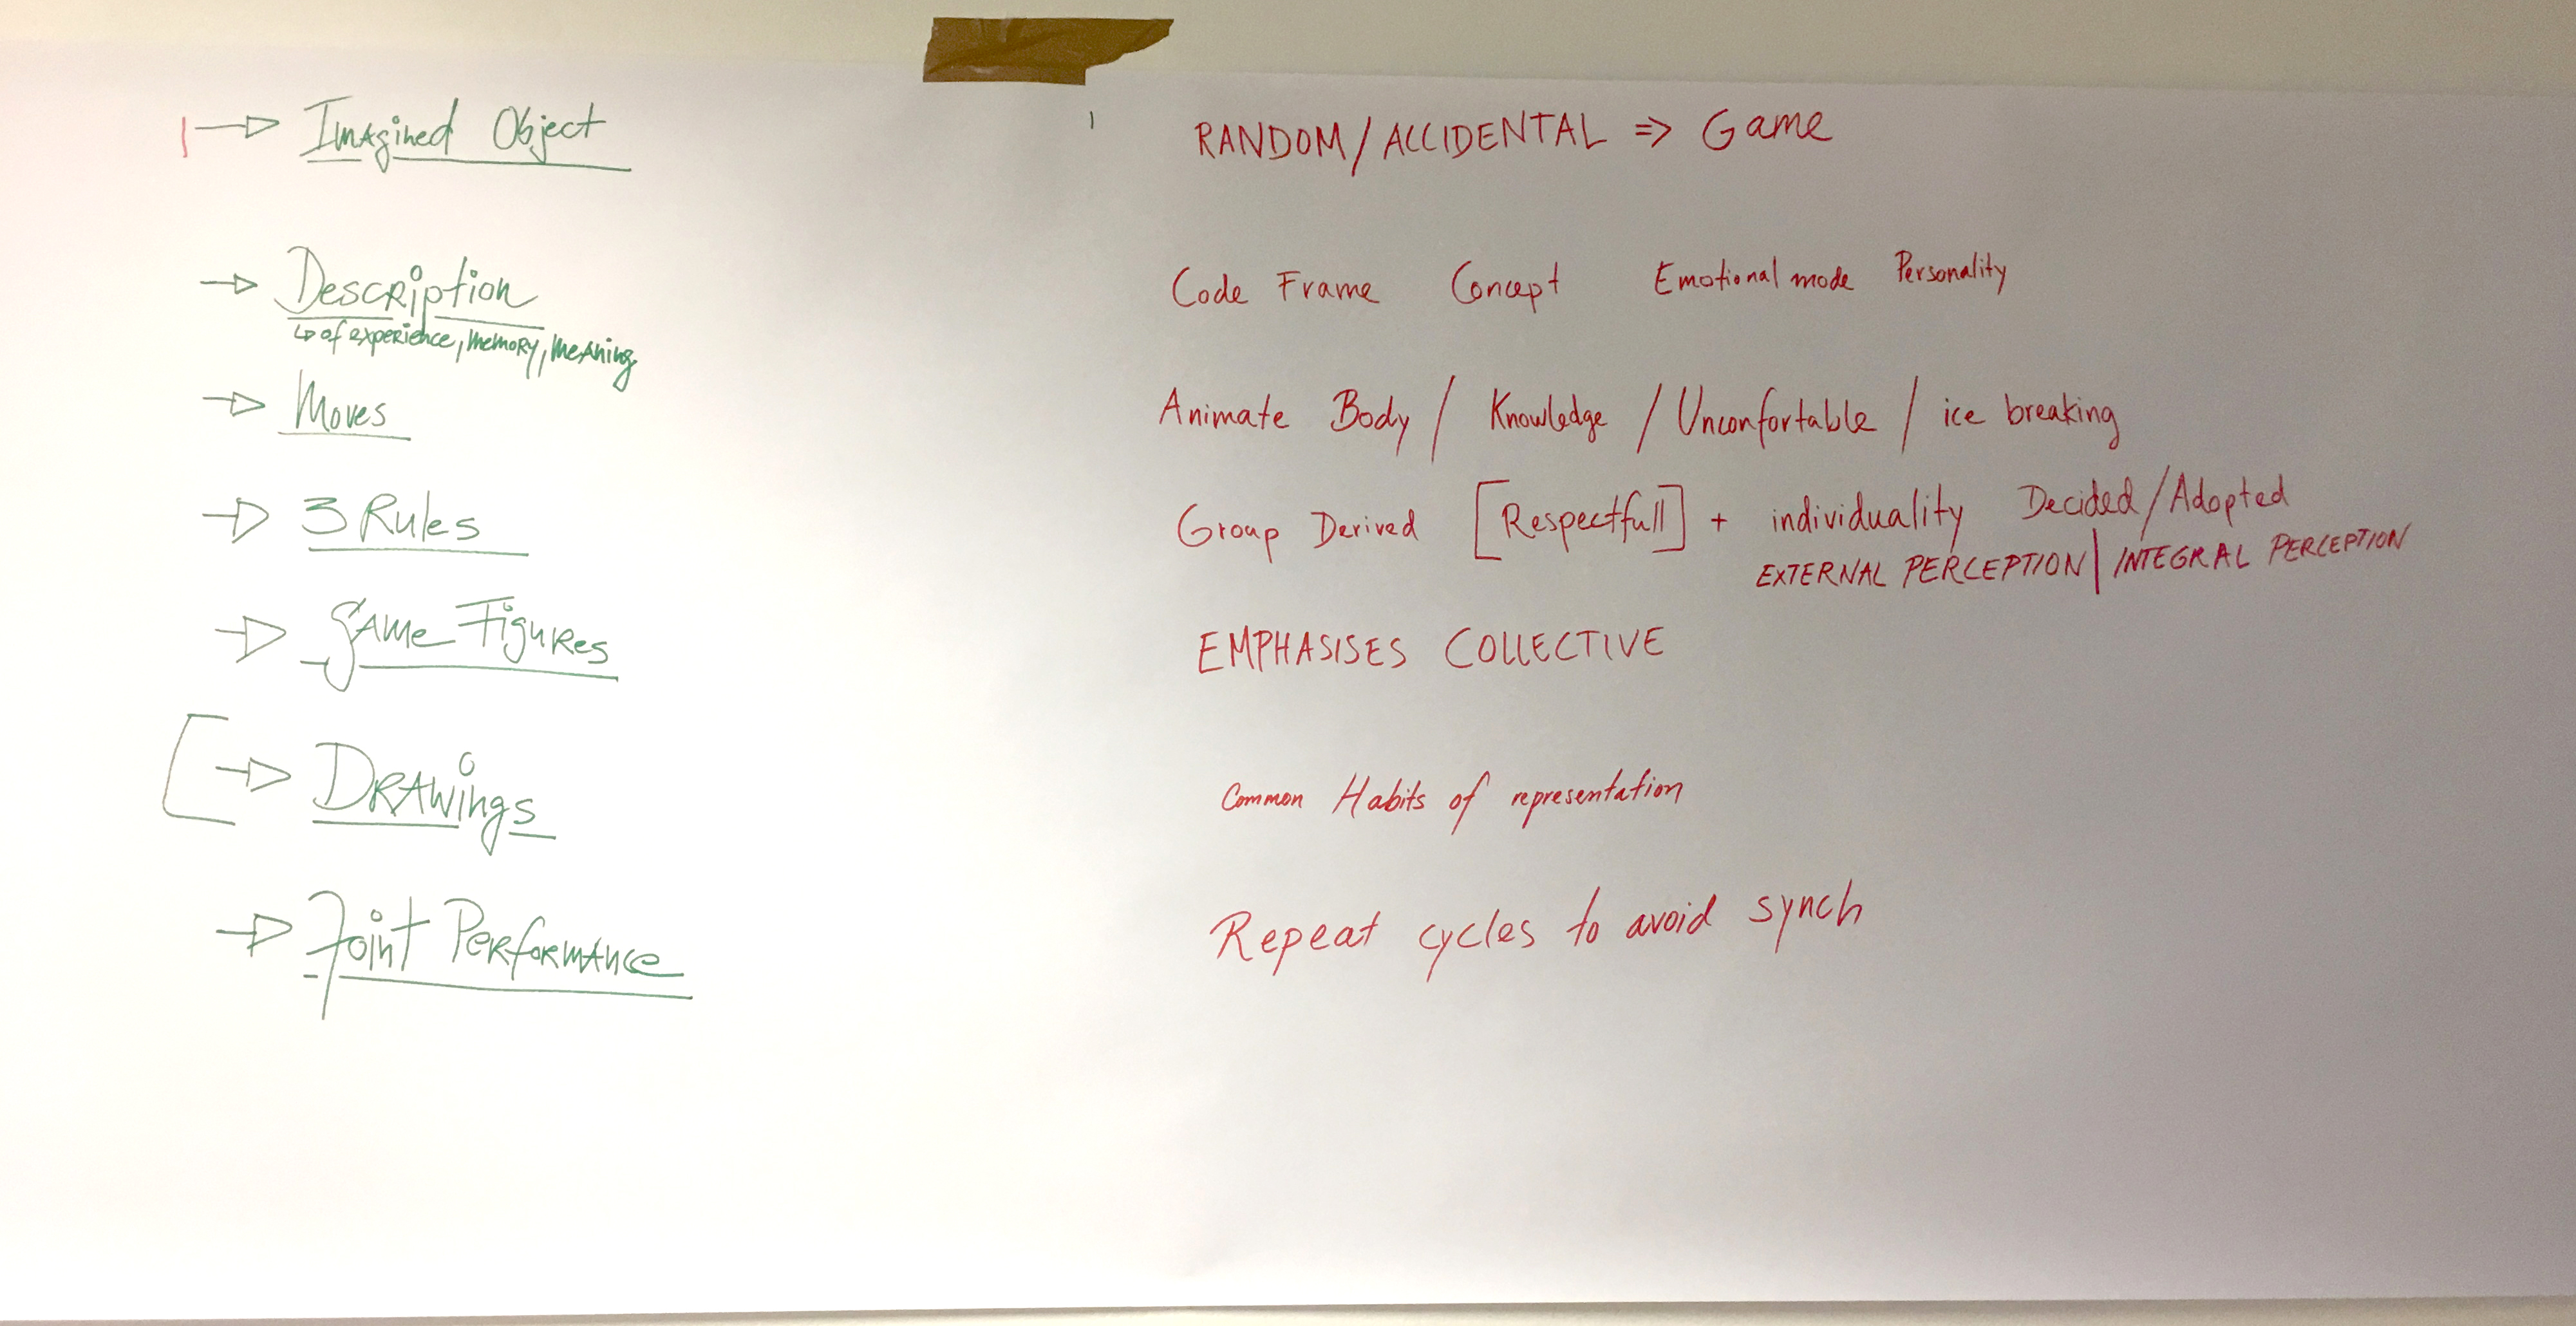 Imagined Object
RANDOM/ACCIDENTAL ⇒ Game
→ Description
↳ of experience, memory, meaning
Code Frame Concept Emotional mode Personality
→ Moves
Animate Body / Knowledge / Unconfortable / ice breaking
→ 3 Rules
Group Derived [Respectfull] + individuality Decided/Adopted
EXTERNAL PERCEPTION | INTEGRAL PERCEPTION
→ Game Figures
EMPHASISES COLLECTIVE
[→ Drawings
Common Habits of representation
→ Joint Performance
Repeat cycles to avoid synch